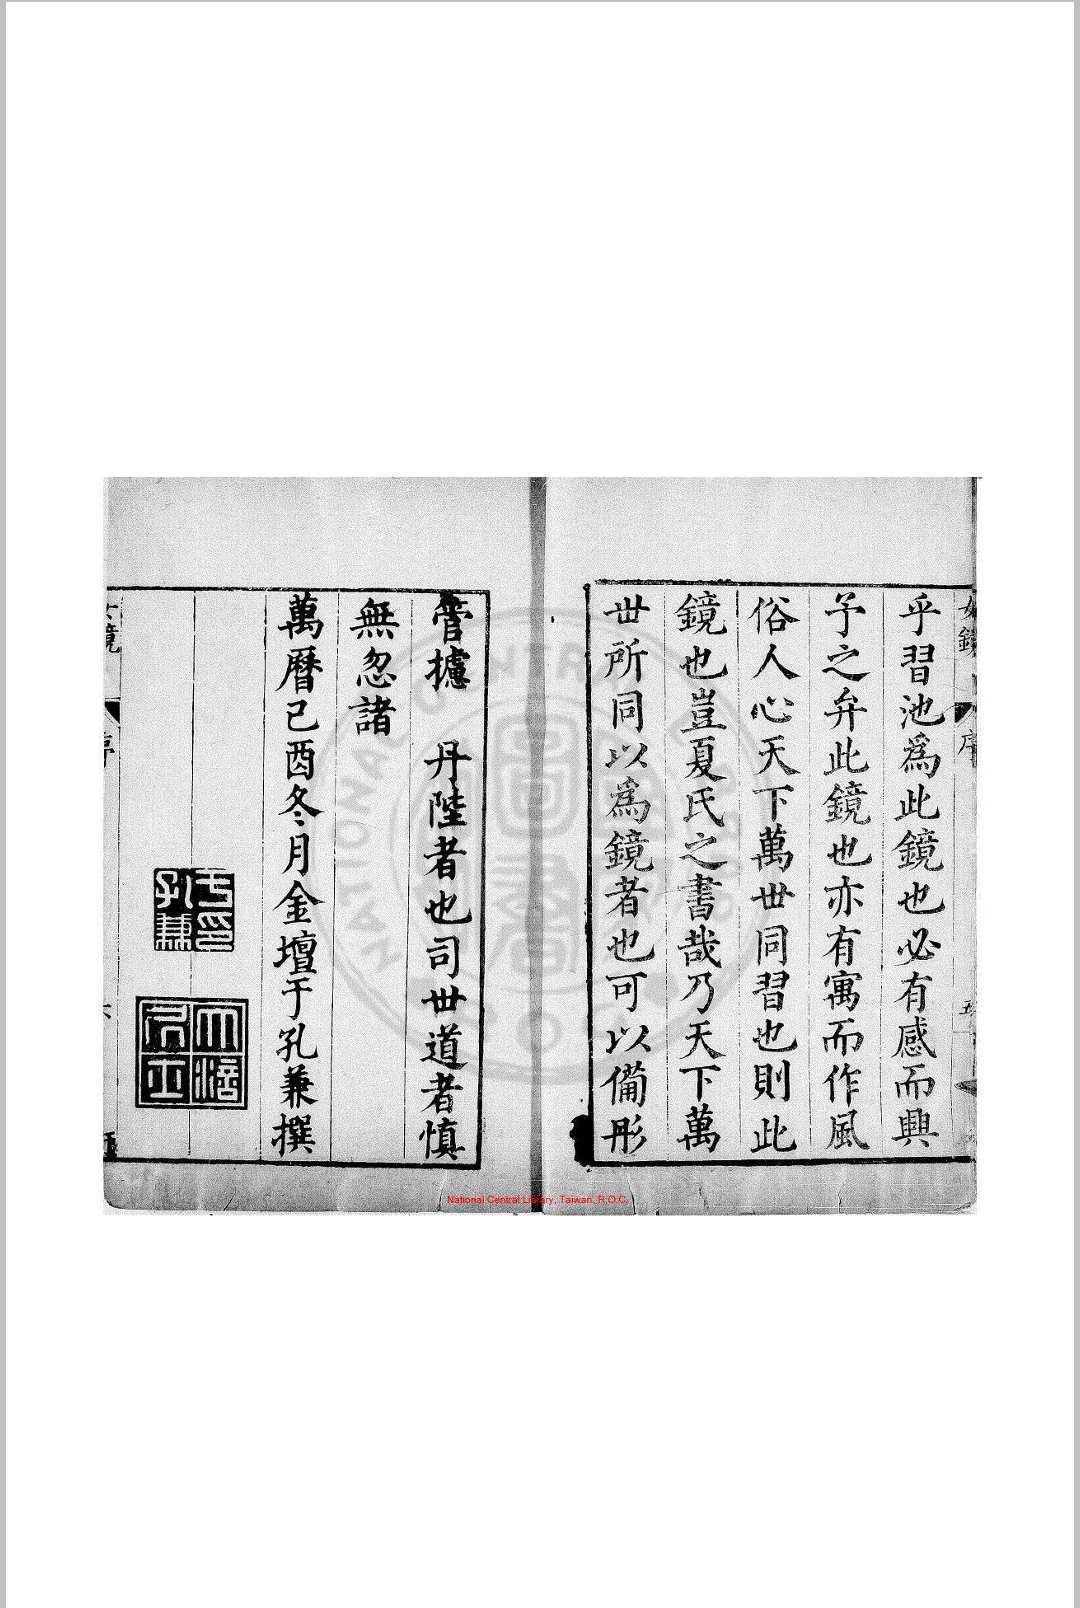 女鏡
序
五
乎習池爲此鏡也必有感而興
予之弁此鏡也亦有寓而作風
俗人心天下萬世同習也則此
鏡也豈夏氏之書哉乃天下萬
世所同以爲鏡者也可以備彤
管攄 丹陛者也司世道者慎
無忽諸
萬曆己酉冬月金壇于孔兼撰
于孔兼印
女鏡
序
六
National Central Library, Taiwan, R.O.C.